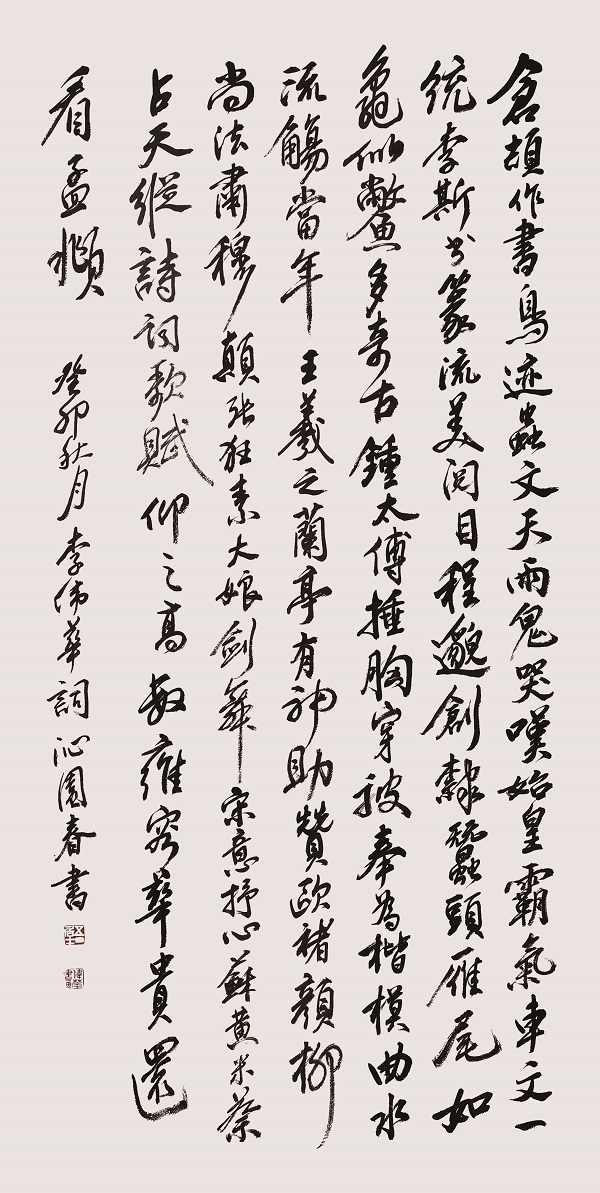 倉頡作書鳥迹蟲文天雨鬼哭嘆始皇霸氣車文一
統李斯书篆流美閱目程邈創隸蠶頭雁尾如
龜似鱉多奇古鍾太傅捶胸穿被奉為楷模曲水
流觴當年王羲之蘭亭有神助贊歐褚顏柳
尚法肅穆顛張狂素大娘劍舞宋意抒心蘇黃米蔡
占天縱詩詞歌賦仰之高數雍容華貴還
看孟頫
癸卯秋月李偉華詞沁園春書